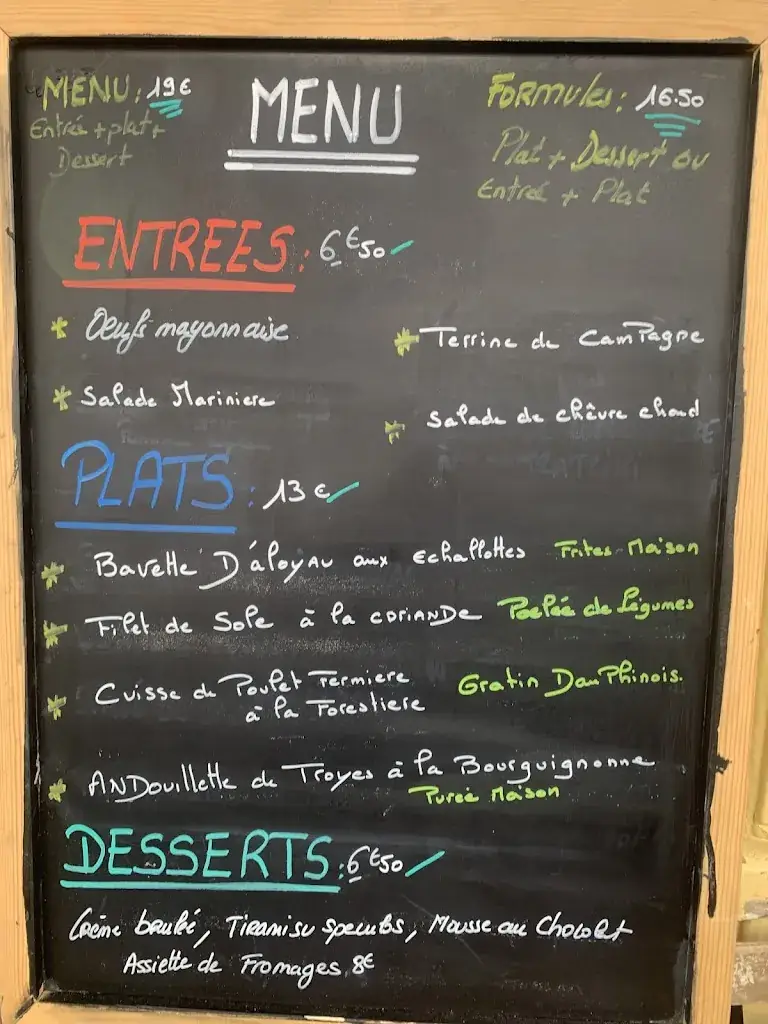 MENU: 19€
Entrée + plat +
Dessert
MENU
Formules: 16.50
Plat + Dessert ou
Entrée + Plat
ENTREES: 6€50
* Oeufs mayonnaise
* Terrine de Campagne
* Salade Mariniere
* Salade de chêvre chaud
PLATS: 13€
* Bavette D'áloyau aux echallottes Frites Maison
* Filet de Sole à la coriande Poelée de Légumes
* Cuisse de Poulet Fermiere Gratin Dauphinois.
à la Forestiere
* ANDouillette de Troyes à la Bourguignonne
Purée Maison
DESSERTS: 6€50
Crème brulé, Tiramisu speculos, Mousse au Chocolat
Assiette de Fromages 8€